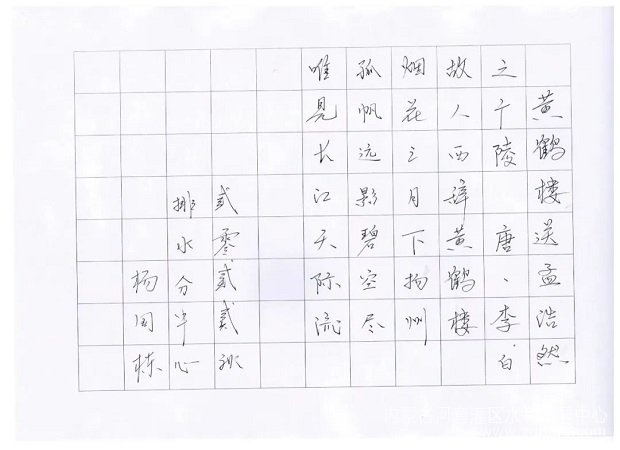 黄鹤楼送孟浩然
之广陵 唐、李白
故人西辞黄鹤楼
烟花三月下扬州
孤帆远影碧空尽
唯見长江天际流
贰零贰贰
排水分中心
杨国栋